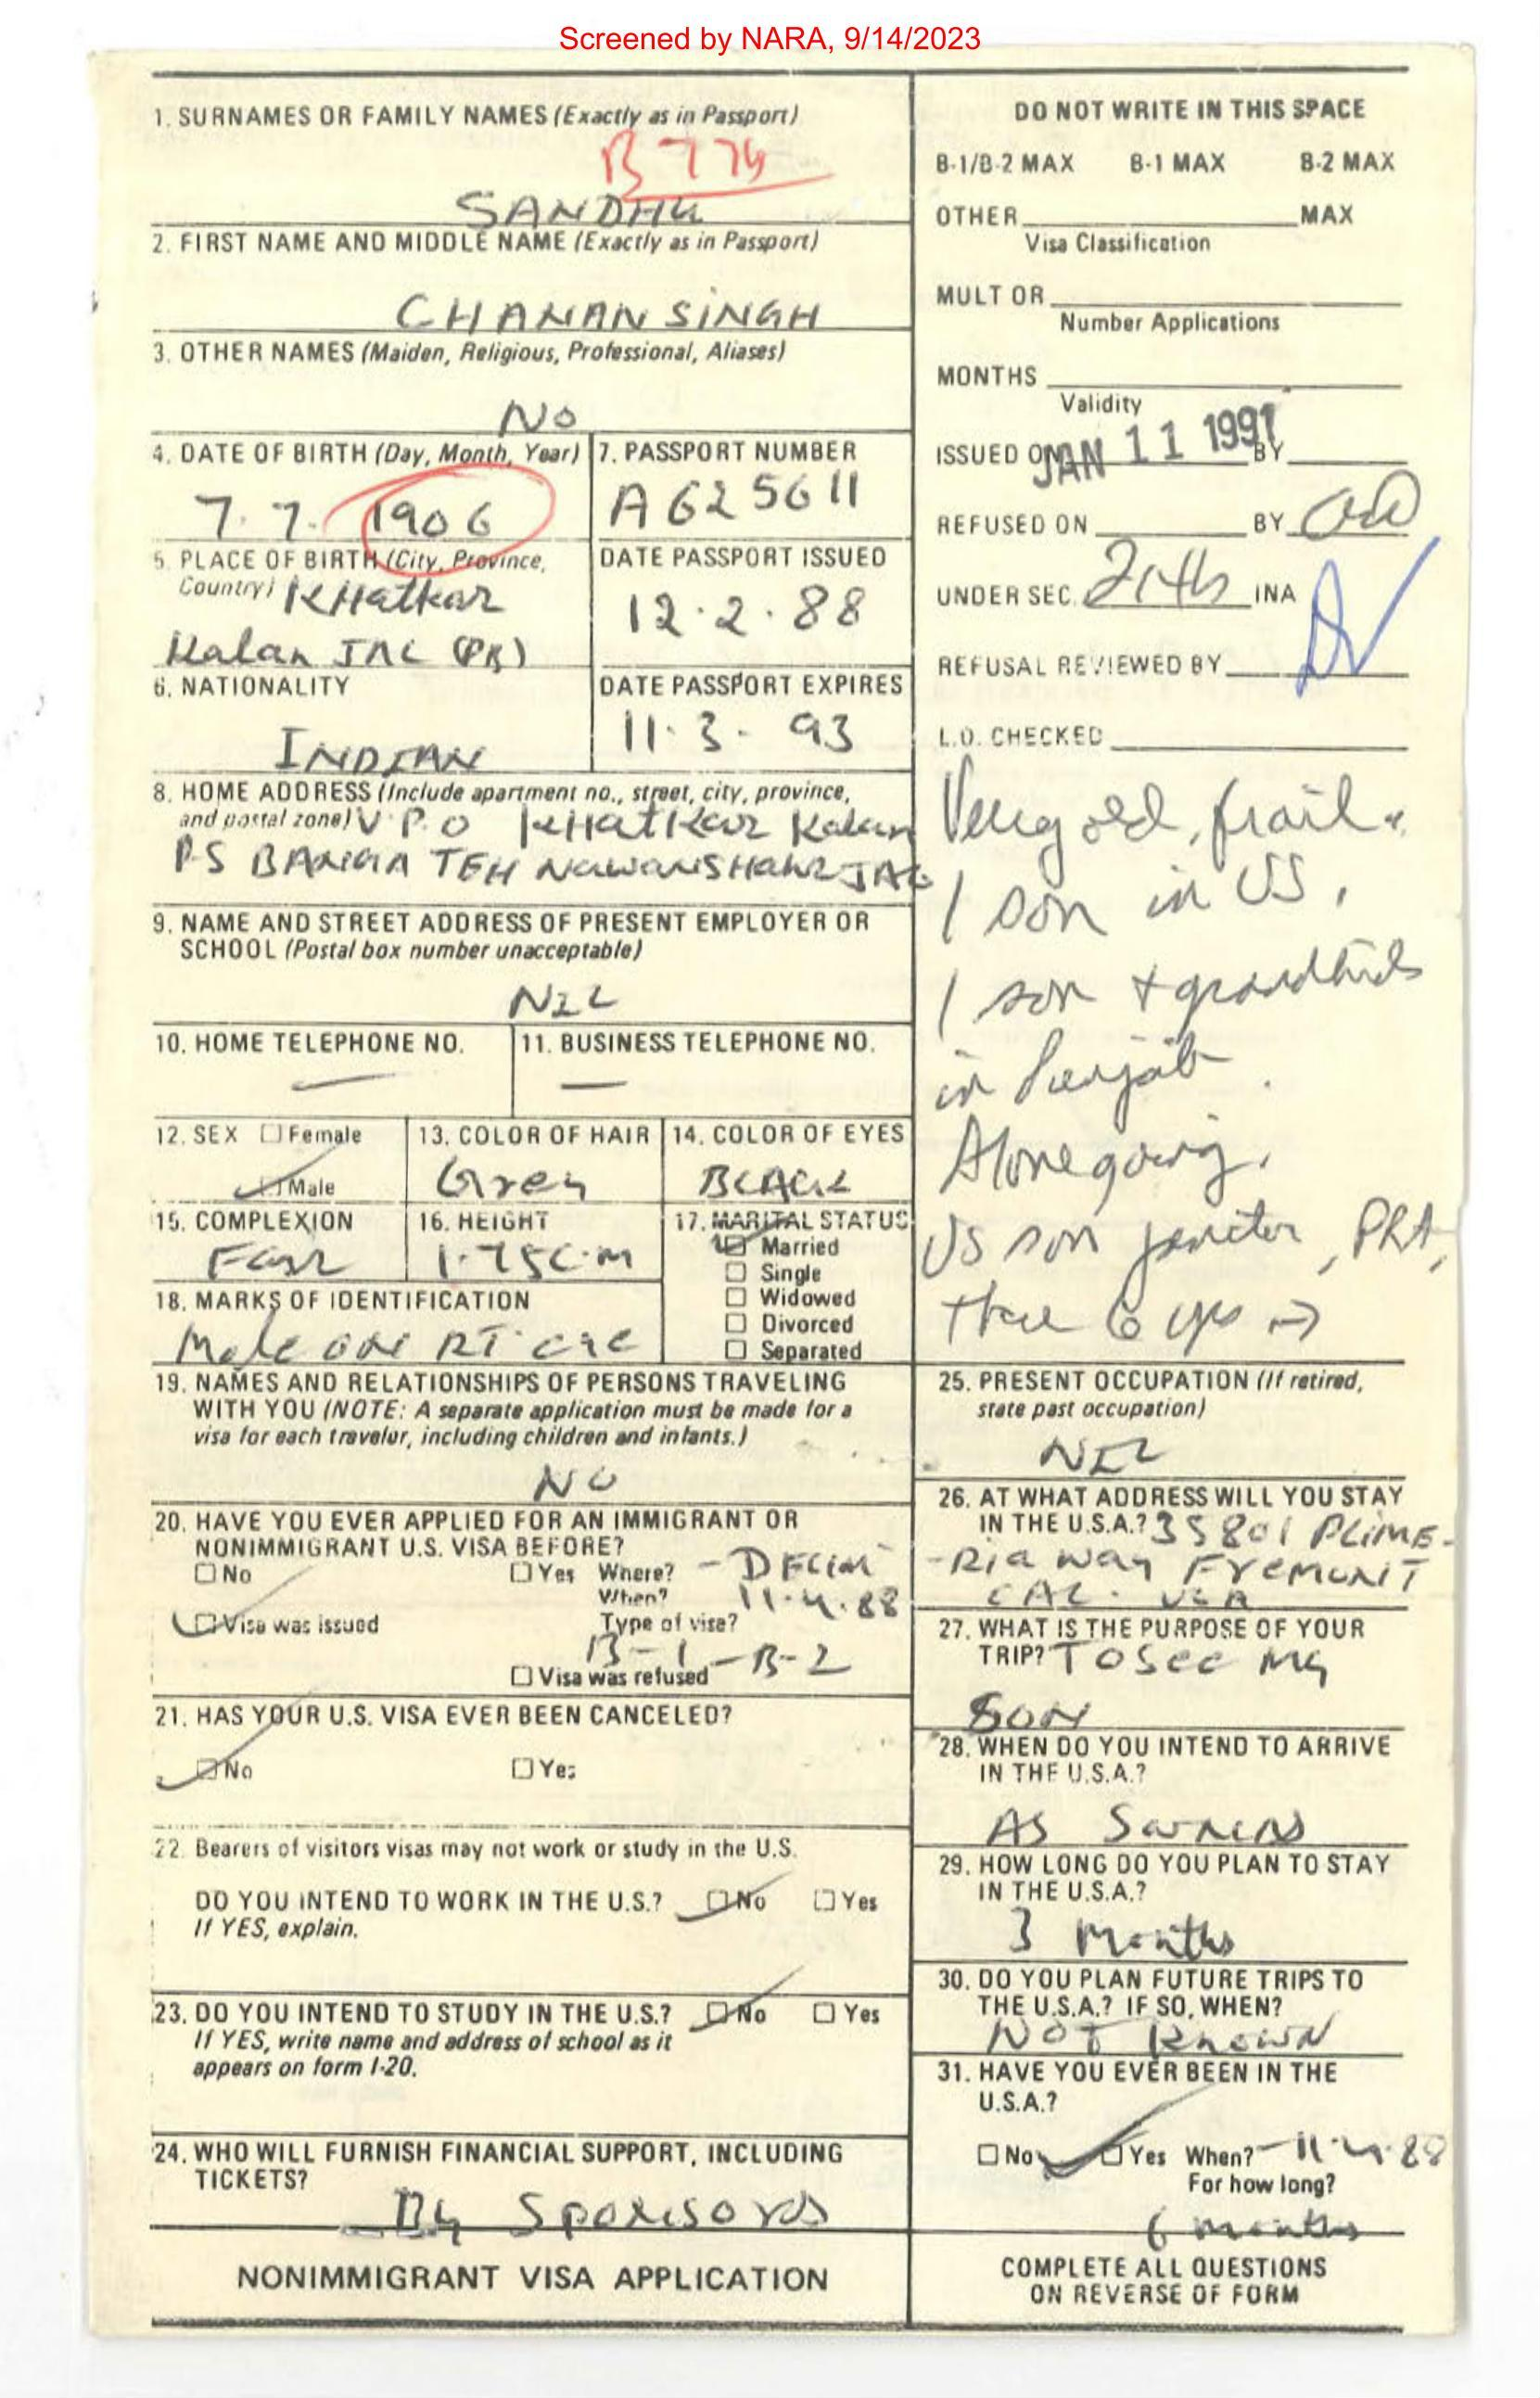 Screened by NARA, 9/14/2023
1. SURNAMES OR FAMILY NAMES (Exactly as in Passport)
SANDHU
2. FIRST NAME AND MIDDLE NAME (Exactly as in Passport)
CHANAN SINGH
3. OTHER NAMES (Maiden, Religious, Professional, Aliases)
NO
4. DATE OF BIRTH (Day, Month, Year)
7. 7. 1906
5. PLACE OF BIRTH (City, Province,
Country) KHatkar
Kalan JAL (PB)
6. NATIONALITY
INDIAN
7. PASSPORT NUMBER
A625611
DATE PASSPORT ISSUED
12.2.88
DATE PASSPORT EXPIRES
11.3.93
8. HOME ADDRESS (Include apartment no., street, city, province,
and postal zone) V.P.O KHatKar Kalan
P.S BANGA TEH NawanSHahr JAL
9. NAME AND STREET ADDRESS OF PRESENT EMPLOYER OR
SCHOOL (Postal box number unacceptable)
NIL
10. HOME TELEPHONE NO.
—
11. BUSINESS TELEPHONE NO.
—
12. SEX Female
Male
13. COLOR OF HAIR
Grey
14. COLOR OF EYES
BLACK
15. COMPLEXION
Fair
16. HEIGHT
1.75C.M
17. MARITAL STATUS
Married
Single
Widowed
Divorced
Separated
18. MARKS OF IDENTIFICATION
Mole on RT.
19. NAMES AND RELATIONSHIPS OF PERSONS TRAVELING
WITH YOU (NOTE: A separate application must be made for a
visa for each traveler, including children and infants.)
NO
20. HAVE YOU EVER APPLIED FOR AN IMMIGRANT OR
NONIMMIGRANT U.S. VISA BEFORE?
No Yes Where? - DELHI
When? 11.4.88
Visa was issued Type of visa?
B-1-B-2
Visa was refused
21. HAS YOUR U.S. VISA EVER BEEN CANCELED?
No Yes
22. Bearers of visitors visas may not work or study in the U.S.
DO YOU INTEND TO WORK IN THE U.S.? No Yes
If YES, explain.
23. DO YOU INTEND TO STUDY IN THE U.S.? No Yes
If YES, write name and address of school as it
appears on form I-20.
24. WHO WILL FURNISH FINANCIAL SUPPORT, INCLUDING
TICKETS?
By Sponsors
NONIMMIGRANT VISA APPLICATION
DO NOT WRITE IN THIS SPACE
B-1/B-2 MAX B-1 MAX B-2 MAX
OTHER MAX
Visa Classification
MULT OR
Number Applications
MONTHS
Validity
ISSUED ON JAN 11 1991 BY
REFUSED ON BY
UNDER SEC. 214b INA
REFUSAL REVIEWED BY
L.O. CHECKED
Very old, frail.
1 son in US,
1 son + grandkids
in Punjab.
Alone going.
US son janitor, PRA,
there 6 yrs →
25. PRESENT OCCUPATION (If retired,
state past occupation)
NIL
26. AT WHAT ADDRESS WILL YOU STAY
IN THE U.S.A.? 35801 PLUME-
-Ria way FreMONT
CAL. USA
27. WHAT IS THE PURPOSE OF YOUR
TRIP? TO See My
SON
28. WHEN DO YOU INTEND TO ARRIVE
IN THE U.S.A.?
AS
29. HOW LONG DO YOU PLAN TO STAY
IN THE U.S.A.?
3 Months
30. DO YOU PLAN FUTURE TRIPS TO
THE U.S.A.? IF SO, WHEN?
NOT KnowN
31. HAVE YOU EVER BEEN IN THE
U.S.A.?
No Yes When? - 11.4.88
For how long?
6 months
COMPLETE ALL QUESTIONS
ON REVERSE OF FORM